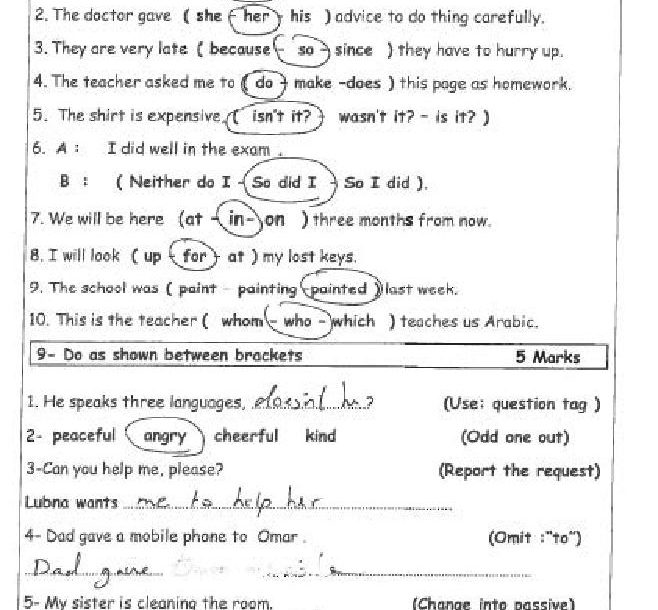 2. The doctor gave ( she - her - his ) advice to do thing carefully.
3. They are very late ( because - so - since ) they have to hurry up.
4. The teacher asked me to ( do - make -does ) this page as homework.
5. The shirt is expensive, ( isn't it? - wasn't it? - is it? )
6. A : I did well in the exam .
B : ( Neither do I - So did I - So I did ).
7. We will be here (at - in- on ) three months from now.
8. I will look ( up - for - at ) my lost keys.
9. The school was ( paint - painting - painted ) last week.
10. This is the teacher ( whom - who - which ) teaches us Arabic.
9- Do as shown between brackets 5 Marks
1. He speaks three languages, doesn't he? (Use: question tag )
2- peaceful angry cheerful kind (Odd one out)
3-Can you help me, please? (Report the request)
Lubna wants me to help her
4- Dad gave a mobile phone to Omar . (Omit :"to")
Dad gave
5- My sister is cleaning the room. (Change into passive)